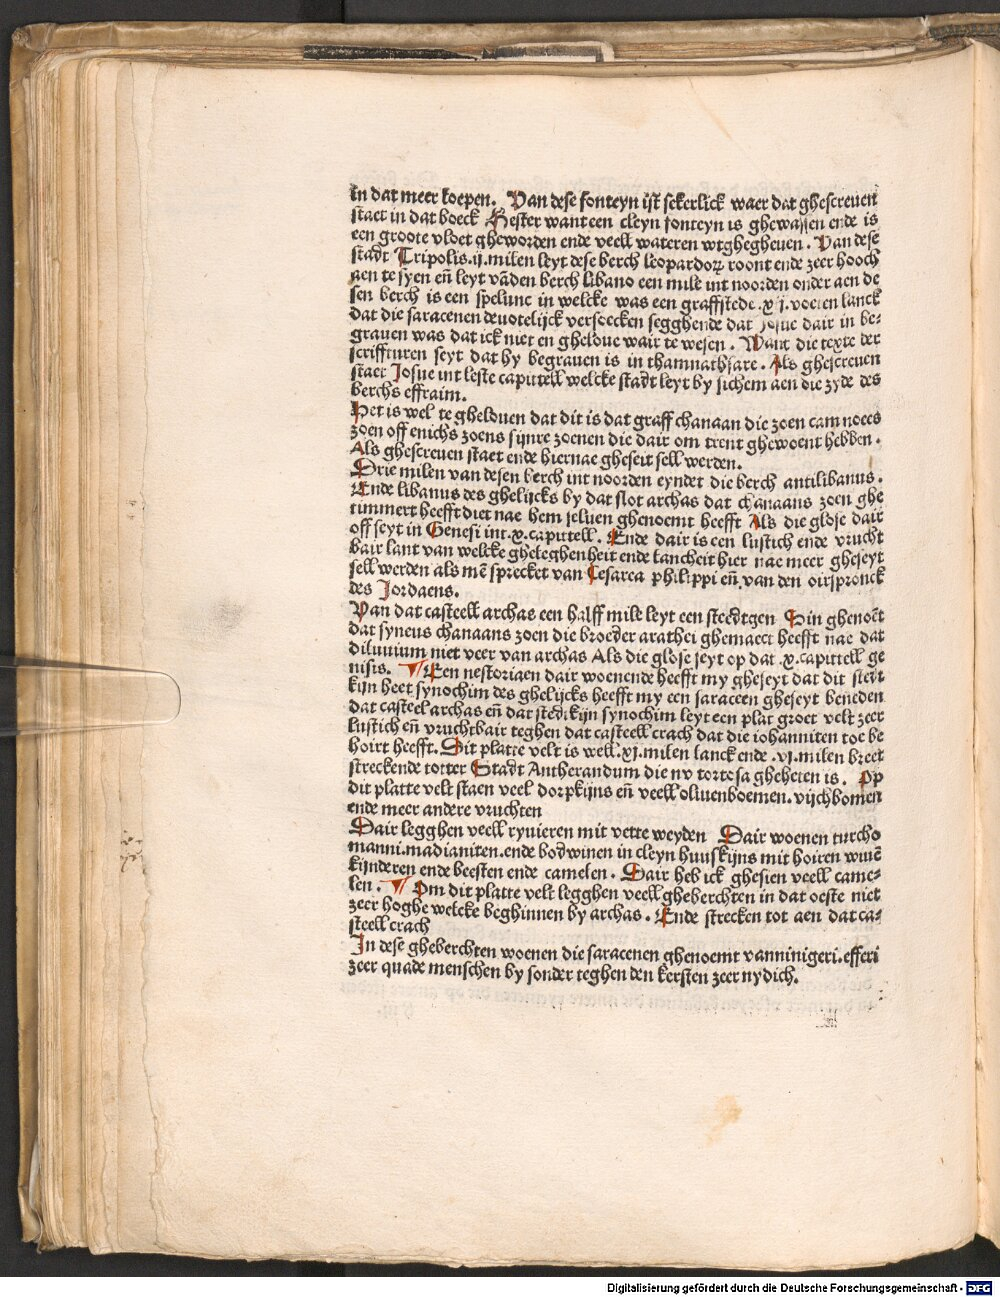 in dat meer loepen. Van dese fonteyn ist sekerlick waer dat ghescreuen
staet in dat boeck Hester want een cleyn fonteyn is ghewassen ende is
een groote vloet gheworden ende veell wateren wtghegheuen. Van dese
stadt Tripolis .ij. milen leyt dese berch leopardoꝝ roont ende zeer hooch
aen te syen eñ leyt vāden berch libano een mile int noorden onder aen de
sen berch is een spelunc in welcke was een graffstede .xij. voeten lanck
dat die saracenen deuotelijck versoecken segghende dat Josue dair in be-
grauen was dat ick niet en gheloue wair te wesen. Want die texte der
scriffturen seyt dat hy begrauen is in thamnathsare. Als ghescreuen
staet Josue int leste capittell welcke stadt leyt by sichem aen die zyde des
berchs effraim.
Het is wel te ghelouen dat dit is dat graff chanaan die zoen cam noees
zoen off enichs zoens sijnre zoenen die dair om trent ghewoent hebben.
Als ghescreuen staet ende hiernae gheseit sell werden.
Drie milen van desen berch int noorden eyndet die berch antilibanus.
Ende libanus des ghelijcks by dat slot archas dat chanaans zoen ghe
timmert heefft diet nae hem seluen ghenoemt heefft Als die glose dair
off seyt in Genesi int .x. capittell. Ende dair is een lustich ende vrucht
bair lant van welcke gheleghenheit ende lancheit hier nae meer gheseyt
sell werden als mē sprecket van Cesarea philippi eñ van den oirspronck
des Jordaens.
Van dat casteell archas een halff mile leyt een steedtgen Sin ghenoēt
dat syneus chanaans zoen die broeder arathei ghemaect heefft nae dat
diluuium niet veer van archas Als die glose seyt op dat .x. capittell ge
nisis. ¶ Een nestoriaen dair woenende heefft my gheseyt dat dit stedt
kijn heet synochim des ghelijcks heefft my een saraceen gheseyt beneden
dat casteel archas eñ dat stedikijn synochim leyt een plat groet velt zeer
lustich eñ vruchtbair teghen dat casteell crach dat die iohanniten toe be
hoirt heefft. Dit platte velt is well .xj. milen lanck ende .vj. milen breet
streckende totter Stadt Antherandum die nv tortosa gheheten is. Op
dit platte velt staen veel dorpkijns eñ veell oliuenboemen. vijchbomen
ende meer andere vruchten
Dair legghen veell ryuieren mit vette weyden Dair woenen turcho
manni. madianiten. ende bodwinen in cleyn huuskijns mit hoiren wiuē
kijnderen ende beesten ende camelen. Dair heb ick ghesien veell came-
len. ¶ Om dit platte velt legghen veell gheberchten in dat oeste niet
zeer hoghe welcke beghinnen by archas. Ende strecken tot aen dat ca-
steell crach
In dese gheberchten woenen die saracenen ghenoemt vanninigeri. efferi
zeer quade menschen by sonder teghen den kersten zeer nydich.
Digitalisierung gefördert durch die Deutsche Forschungsgemeinschaft - DFG